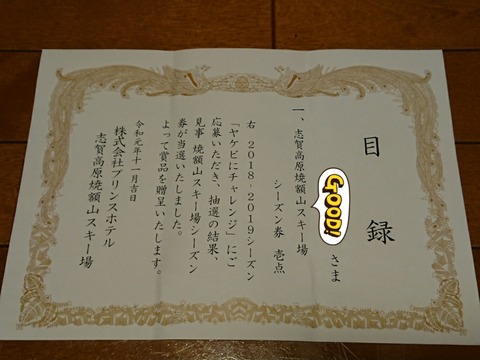 目録
GOOD!
さま
一、志賀高原焼額山スキー場
シーズン券 壱点
右 2018-2019シーズン
「ヤケビにチャレンジ」にご
応募いただき、抽選の結果、
見事 焼額山スキー場シーズン
券が当選いたしました。
よって賞品を贈呈いたします。
令和元年十一月吉日
株式会社プリンスホテル
志賀高原焼額山スキー場